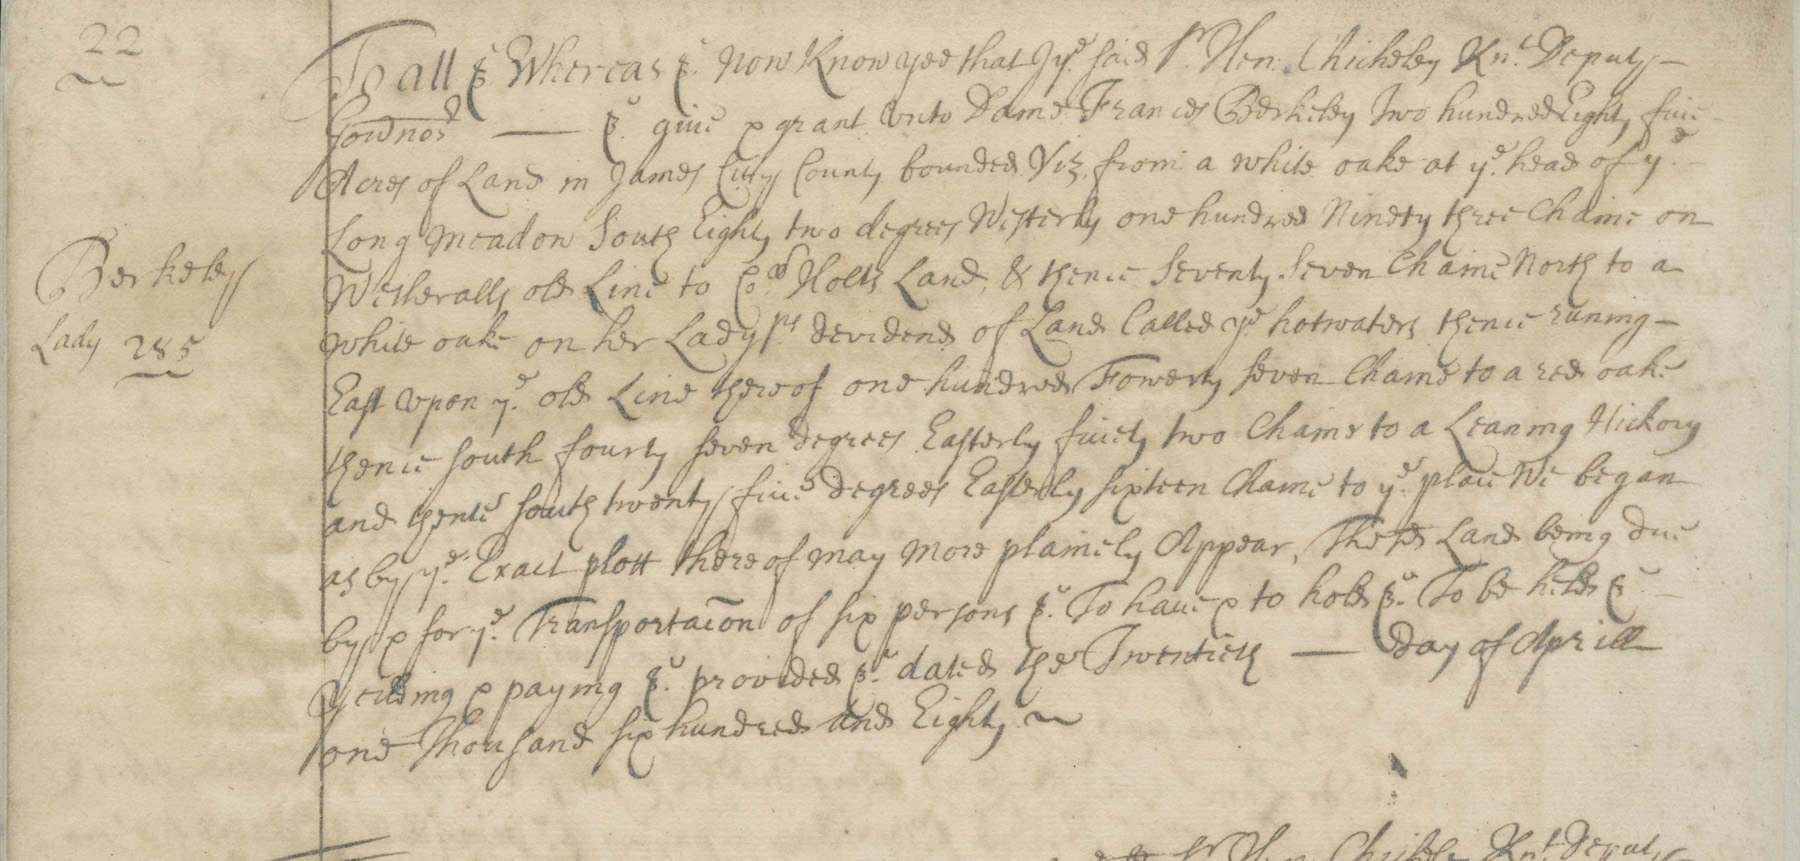 22
To all &c Whereas &c. Now Know yee that I ye. said Sr. Hen: Chicheley Knt. Deputy
Governor — &c. give & grant unto Dame Frances Berkeley Two hundred Eighty five
Acres of Land in James Citty County bounded Viz. from a white oake at ye. head of ye.
Long Meadow South Eighty two degrees Westerly one hundred Ninety three Chaine on
Wetheralls old Line to Holts Land, & thence Seventy Seven Chaine North to a
Berkeley
white oake on her Ladyps devidend of Land Called ye hotwaters thence runing
Lady 285
East upon ye. old Line thereof one hundred Fowerty seven Chaine to a red oake
thence south fourty seven degrees Easterly fivety two Chaine to a Leaning Hickory
and thence south twenty five degrees Easterly sixteen Chaine to ye. place We began
as by ye. Exact plott thereof may more plainely Appear, The sd Land being due
by & for ye. Transportacon of six persons &c. To have & to hold &c. To be held &c.
Yeilding & paying &c. provided &c. dated the Twentieth — day of Aprill
one Thousand six hundred and Eighty
Sr Hen: Chicheley Knt. Deputy